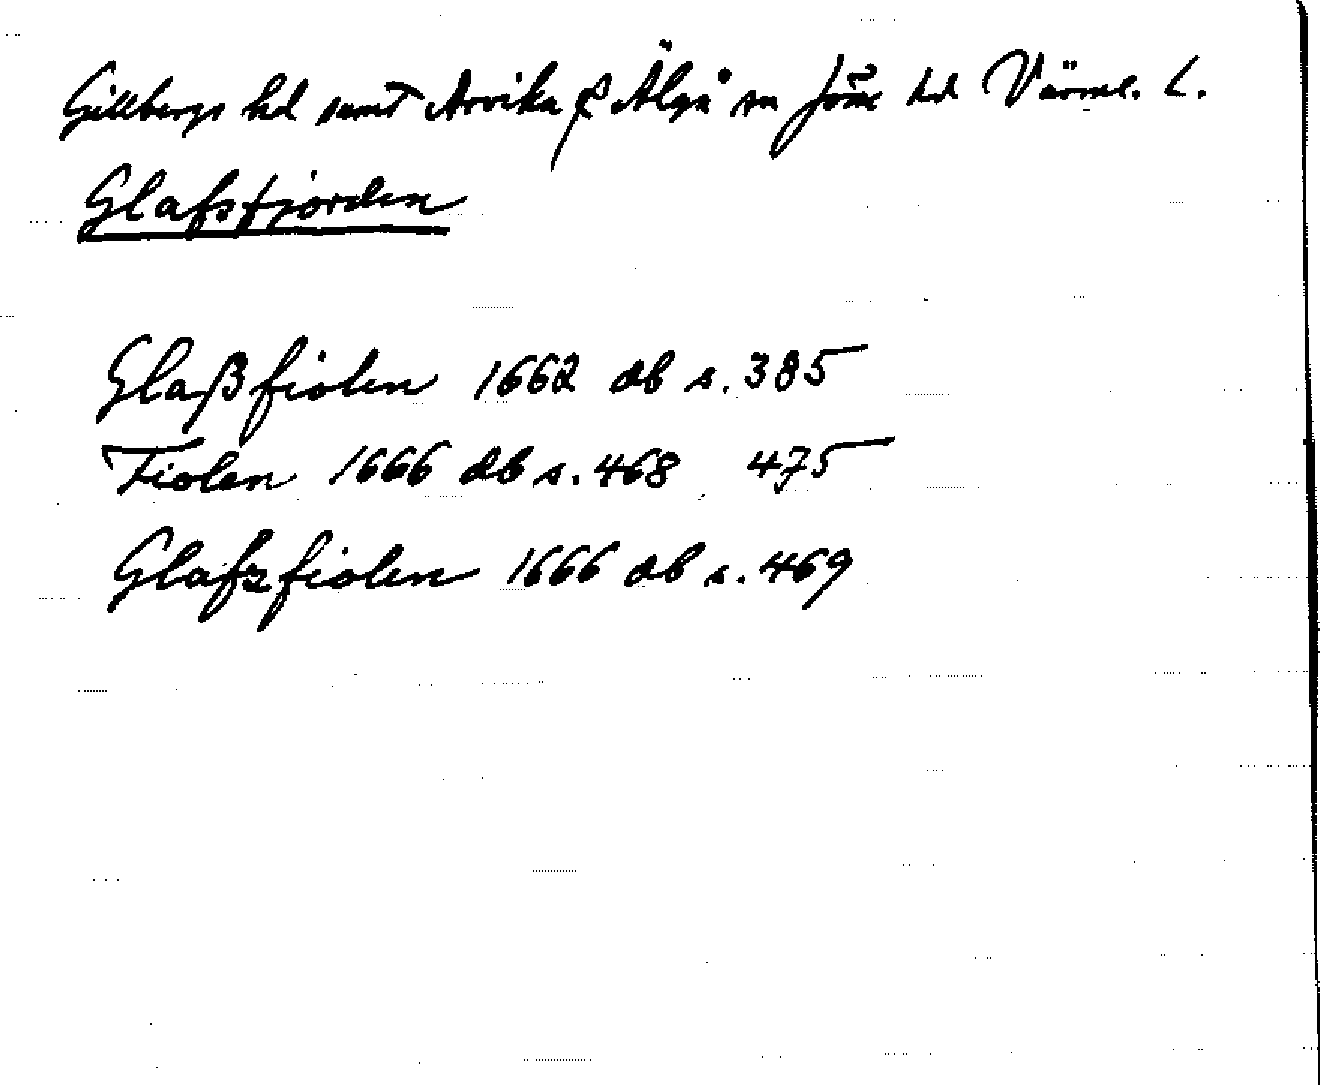 Gillbergs hd samt Arvika & Älgå sn Jösse hd Värml. L.
Glafsfjorden
Glaßfiolen 1662 db s. 385
Fiolen 1666 db s. 468 475
Glafzfiolen 1666 db s. 469